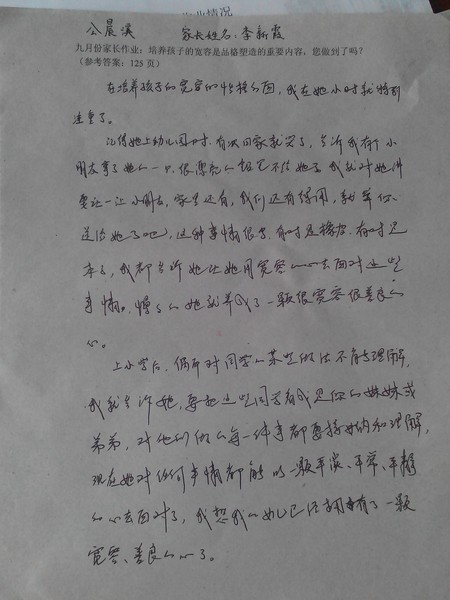 业情况
公晨溪 家长姓名:李新霞
九月份家长作业:培养孩子的宽容是品格塑造的重要内容,您做到了吗?
(参考答案:125 页)
在培养孩子的宽容的性格方面,我在她小时就特别
注重了。
记得她上幼儿园时,有次回家就哭了,告诉我有个小
朋友拿了她的一只很漂亮的铅笔不给她了,我就对她讲
要让一让小朋友,家里还有,我们还有得用,就算你
送给她了吧,这种事情很多,有时是橡皮,有时是
本子,我都告诉她让她用宽容的心去面对这些
事情。慢慢的她就养成了一颗很宽容很善良的
心。
上小学后,偶而对同学的某些做法不能理解,
我就告诉她,要把这些同学看成是你的妹妹或
弟弟,对他们做的每一件事都要接纳和理解,
现在她对任何事情都能以一颗平淡、平常、平静
的心去面对了,我想我的女儿已经拥有了一颗
宽容、善良的心了。